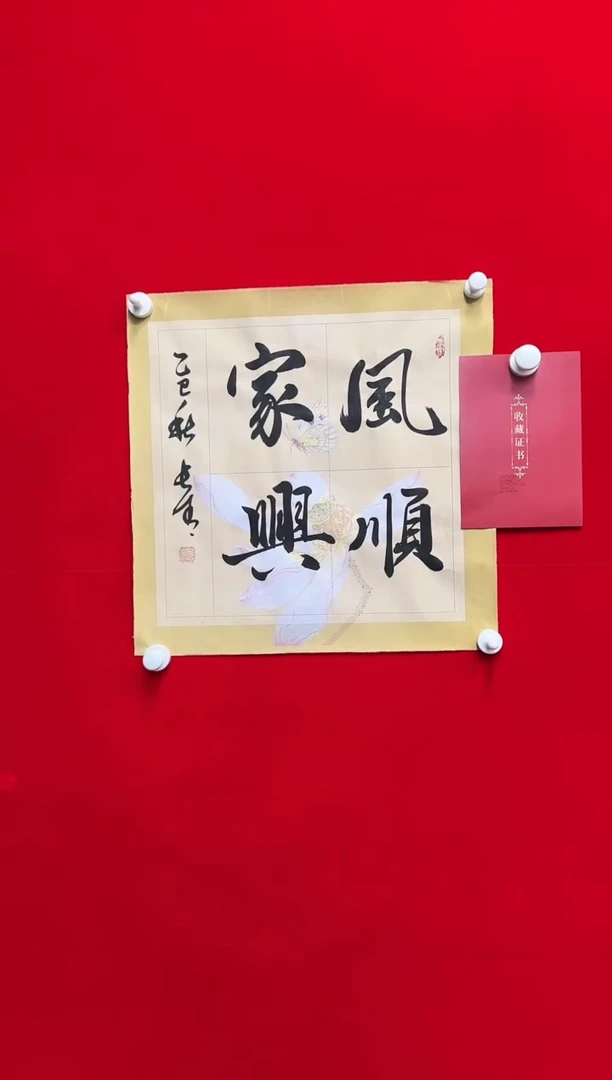 風順
家興
乙巳秋 长青
收藏证书